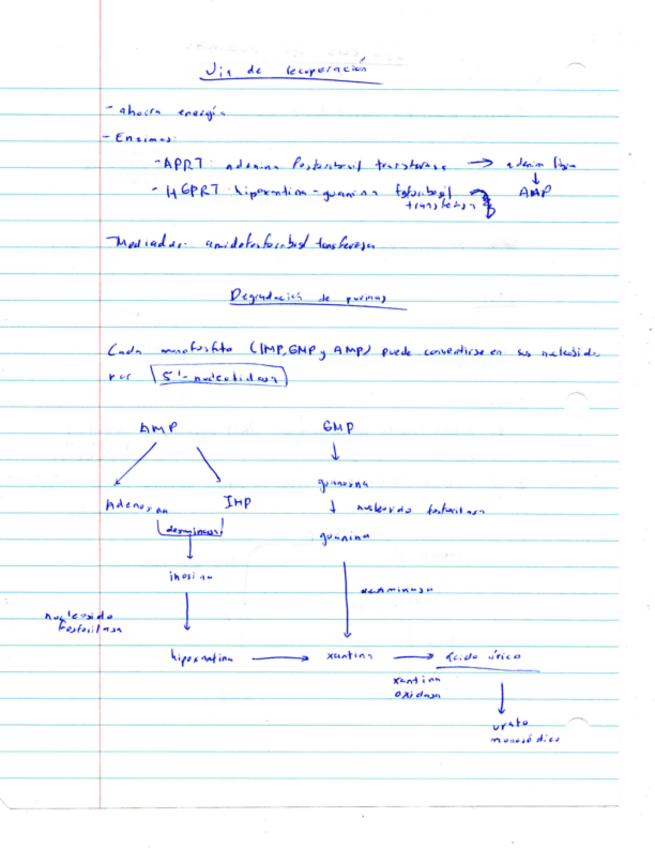 Vía de recuperación
- ahorra energía
- Enzimas:
- APRT: adenina fosforibosil transferasa → adenina libre
↓
- HGPRT: hipoxantina-guanina fosforibosil AMP
transferasa
Mediador: amidofosforribosil transferasa
Degradación de purinas
Cada monofosfato (IMP, GMP y AMP) puede convertirse en su nucleósido
por 5'-nucleotidasa
AMP GMP
guanosina
Adenosina IMP ↓ nucleosido fosforilasa
desaminasa guanina
inosina
desaminasa
nucleosido
fosforilasa
hipoxantina → xantina → ácido úrico
xantina
oxidasa
urato
monosódico